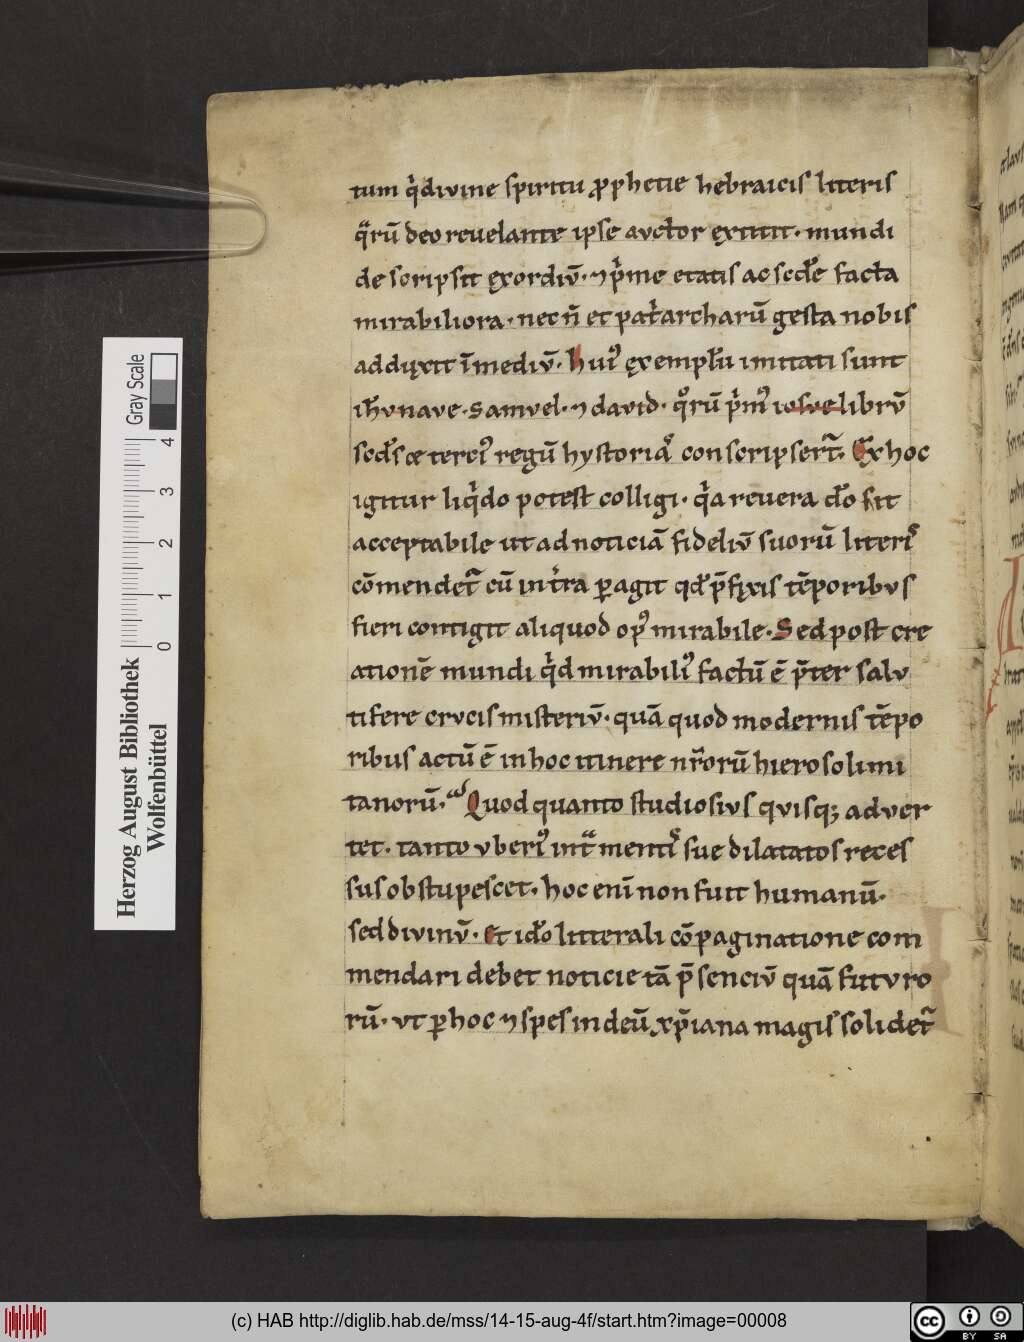 tum q̍divine spiritu ꝓphetie hebraicis literis
q̈rū deo reuelante ipse avctor ęxtitit. mundi
descripsit ęxordiv̄. ⁊ p̍me etatis ac scd̄e facta
mirabiliora. necn̄ et pat̍archarū gesta nobis
adduxit ī mediv̄. hui᾽ ęxemplū imitati sunt
ih̄v nave. samvel. ⁊ david. qͦrū p̍m᾽ iosve librv̄
scd̄s & terci᾽ regū hystoriā conscripser̄t. Exhoc
igitur liq̍do potest colligi. q̍a reuera do̅ sit
acceptabile ut ad noticiā fideliv̄ suorū literis
cōmendet᷑ cū int̍ra ꝑagit qd̄ p̄fixis tēporibvs
fieri contigit aliquod op᾽ mirabile. Sed post cre
ationē mundi q̍d mirabili᾽ factū ē p̄ter salv
tifere crvcis misteriv̄. quā quod modernis tēpo
ribus actū ē in hoc itinere nr̄orū hierosolimi
tanorū. Quod quanto studiosivs qvisq; adver
tet. tanto vberi᾽ int̄ mentis sue dilatatos reces
sus obstupescet. hoc enī non fuit humanū.
sed divinv̄. et ido̅ litterali cōpaginatione com
mendari debet noticie tā p̄senciv̄ quā futvro
rū. vt ꝑ hoc ⁊ spes in deū xp̄iana magis solidet᷑
Gray Scale
0 1 2 3 4
Herzog August Bibliothek
Wolfenbüttel
(c) HAB http://diglib.hab.de/mss/14-15-aug-4f/start.htm?image=00008
cc BY SA